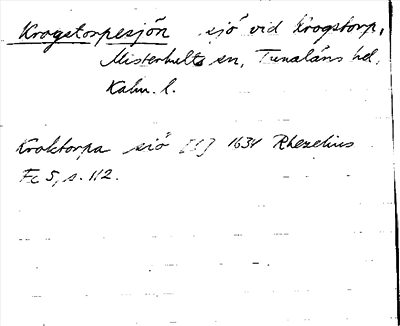 Krogstorpesjön sjö vid Krogstorp,
Misterhults sn, Tunaläns hd,
Kalm. l.
Kroktorpa siö [S] 1634 Rhezelius
Fc 5, s. 112.